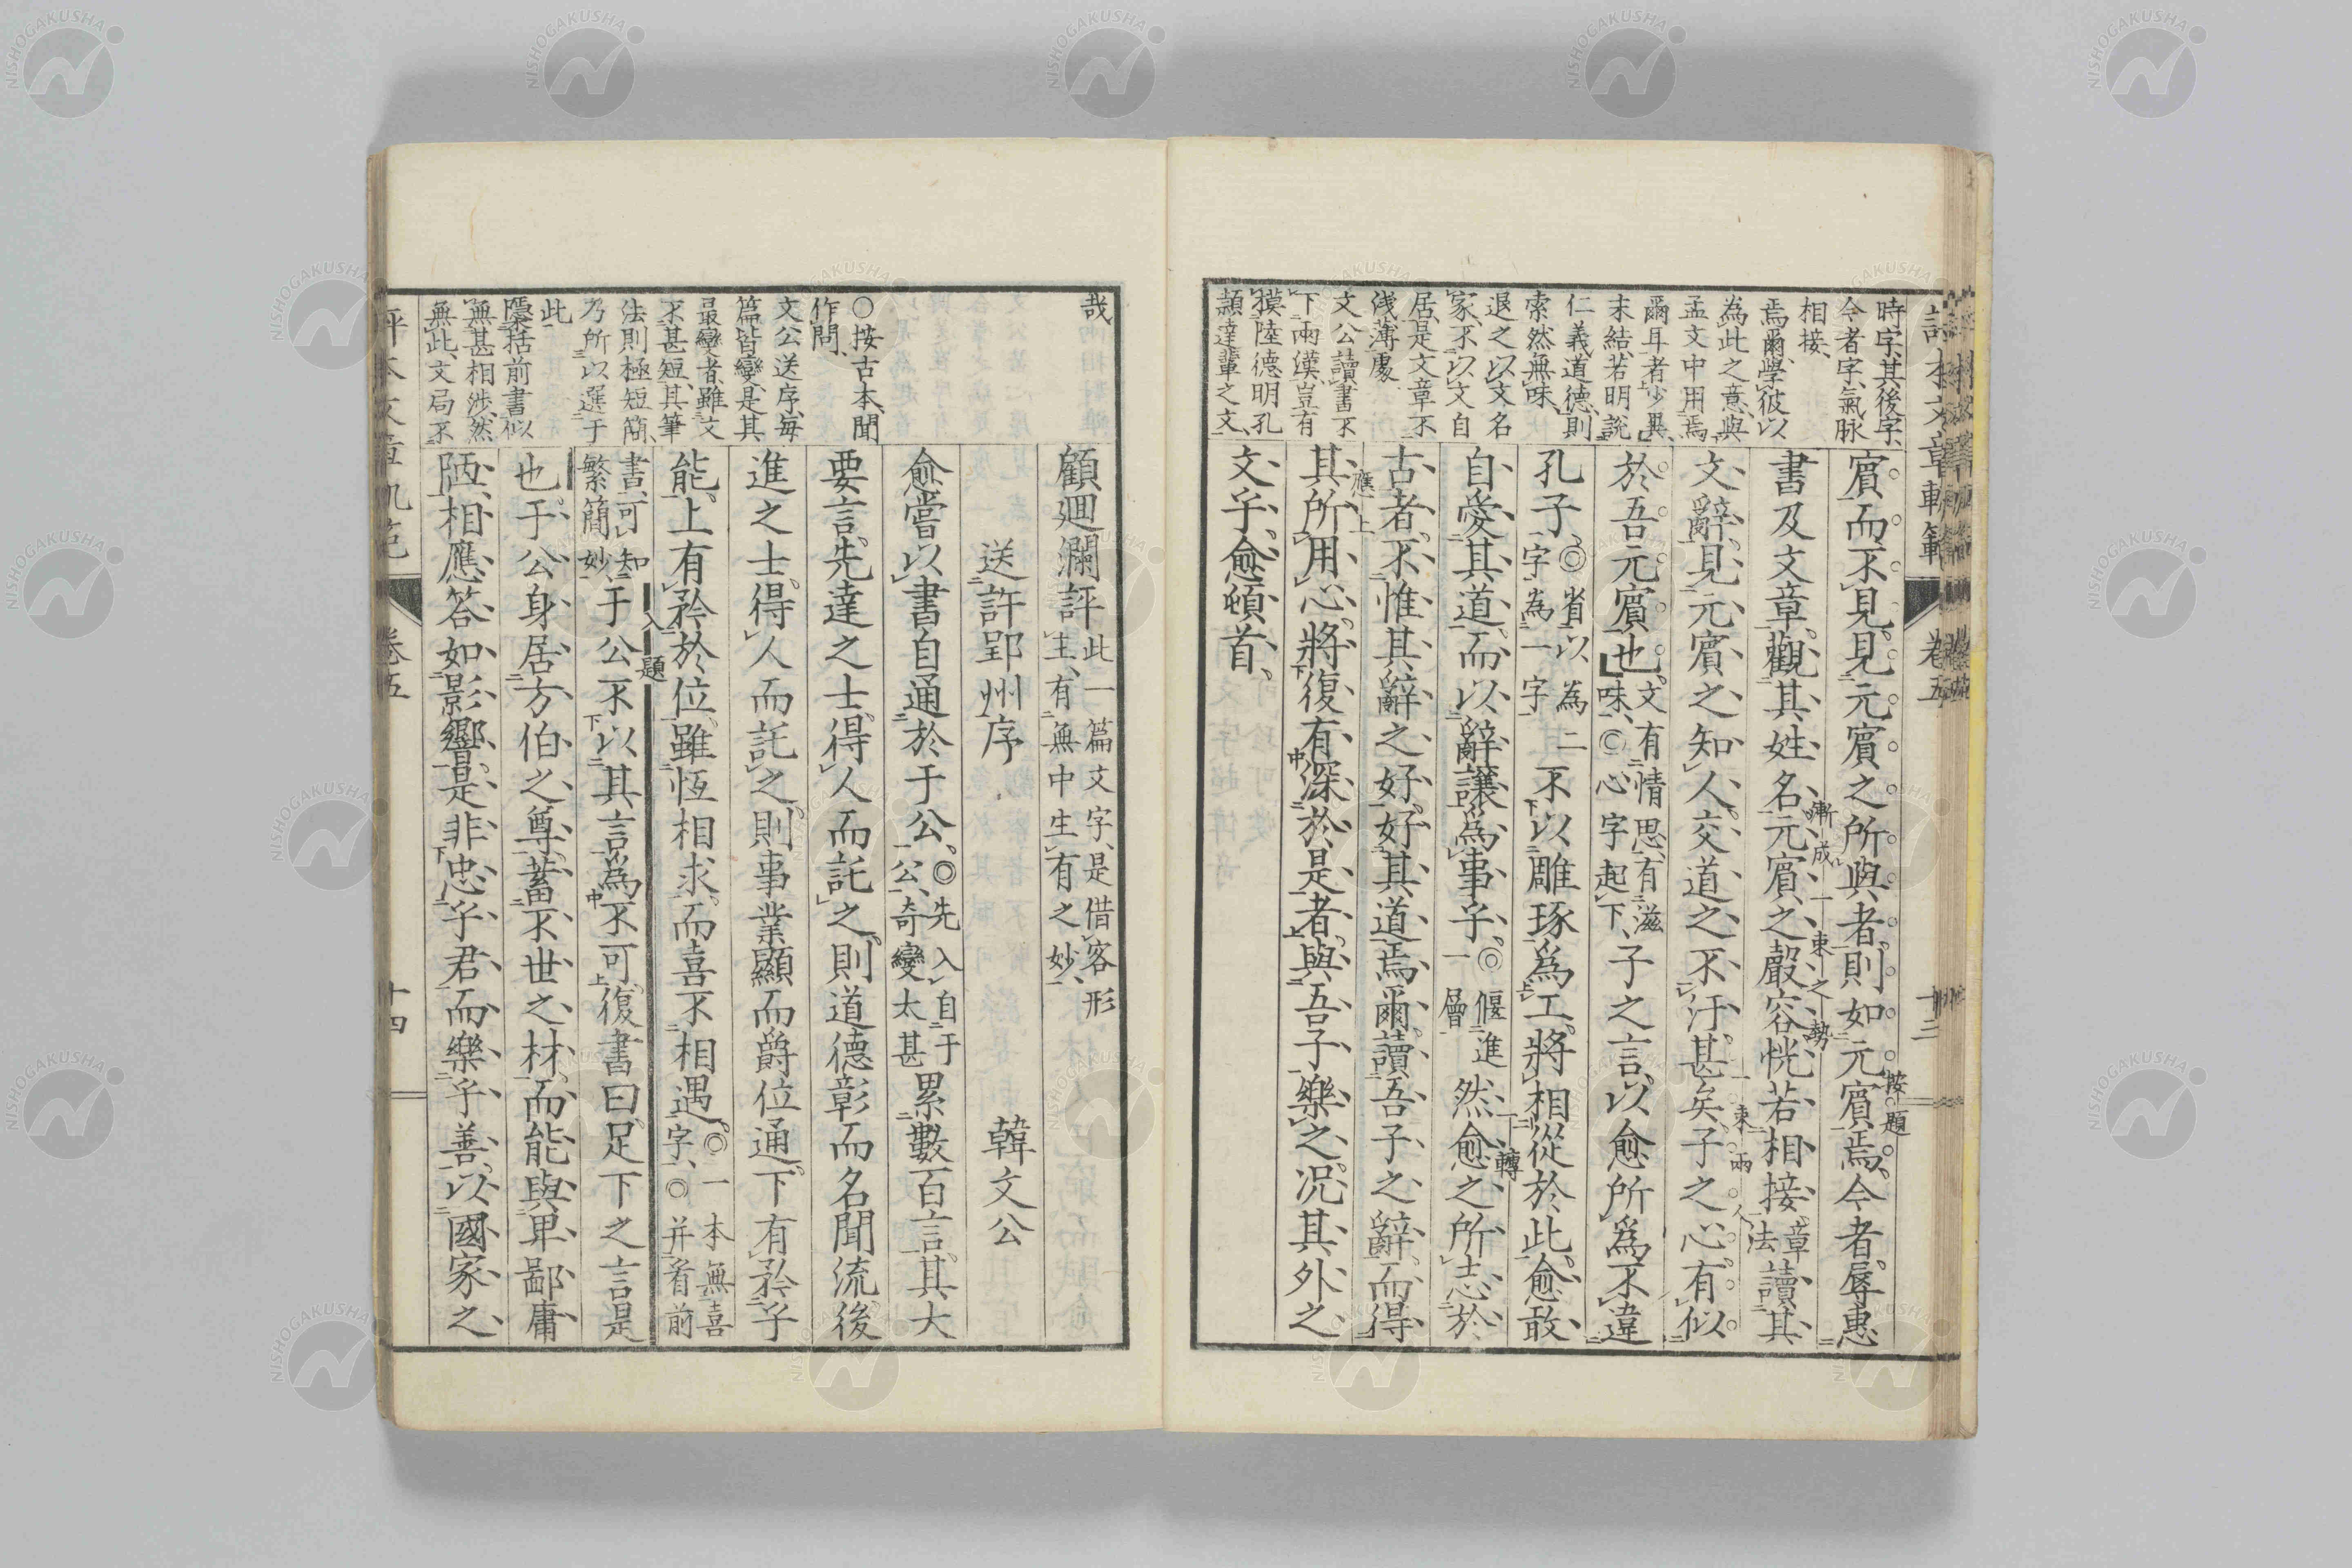 時字、其後字、
今者字、氣脉
相接、
焉爾、學彼以
為此之意、與
孟文中用焉
爾耳者少異、
末結、若明說
仁義道德、則
索然無味、
退之以文名
家、不以文自
居、是文章不
淺薄處
文公讀書不
下兩漢、豈有
摸陸德明孔
頴達輩之文、
賓而不見、見元賓之所與者、則如元賓焉、今者辱惠
按題
書及文章、觀其姓名、元賓之聲容恍若相接、章法讀其
漸成一束之勢
文辭、見元賓之知人、交道之不汙、甚矣、子之心、有似
一束兩人
於吾元賓也、文有情思、有滋味、◎心字起下、子之言、以愈所爲不違
孔子、◎省以為二字為一字不以雕琢爲工、將相從於此、愈敢
自愛其道、而以辭讓爲事乎、◎偃進一層然愈之所志於
一轉
古者、不惟其辭之好、好其道焉爾、讀吾子之辭、而得
其所用心、將復有深於是者、與吾子樂之、況其外之
應上
文乎、愈頓首、
卷五
十三
哉
○按古本、聞
作問、
文公送序、每
篇皆變、是其
最變者、雖文
不甚短、其筆
法則極短簡、
乃所以選于
此
隱括前書、似
無甚相涉、然
無此、文局不
顧廻瀾評此一篇文字、是借客形主、有無中生有之妙、
送許郢州序
韓文公
愈嘗以書自通於于公、◎先入自于公、奇變太甚累數百言、其大
要言、先達之士、得人而託之、則道德彰而名聞流、後
進之士、得人而託之、則事業顯而爵位通、下有矜乎
能、上有矜於位、雖恆相求、而喜不相遇、◎一本無喜字、◎并省前
書、可知繁簡妙于公不以其言爲不可、復書曰、足下之言是
入題
也、于公身居方伯之尊、蓄不世之材、而能與卑鄙庸
陋、相應答如影響、是非忠乎君、而樂乎善、以國家之
卷五
十四